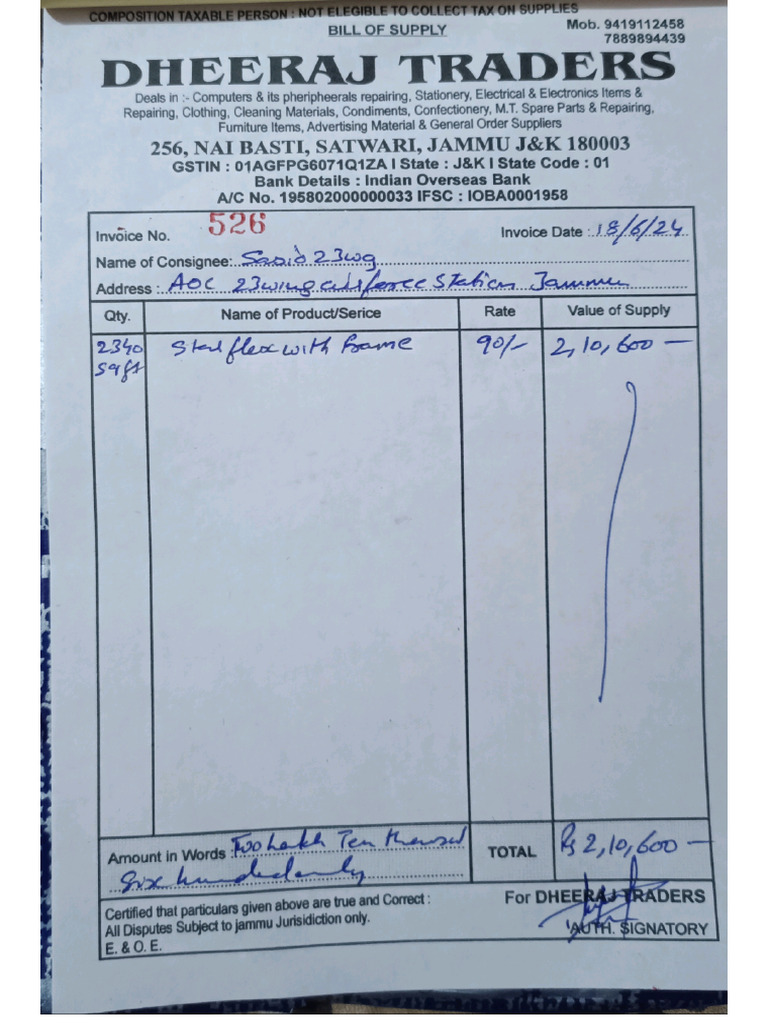 COMPOSITION TAXABLE PERSON : NOT ELEGIBLE TO COLLECT TAX ON SUPPLIES
BILL OF SUPPLY
Mob. 9419112458
7889894439
DHEERAJ TRADERS
Deals in :- Computers & its pheripheerals repairing, Stationery, Electrical & Electronics Items &
Repairing, Clothing, Cleaning Materials, Condiments, Confectionery, M.T. Spare Parts & Repairing,
Furniture Items, Advertising Material & General Order Suppliers
256, NAI BASTI, SATWARI, JAMMU J&K 180003
GSTIN : 01AGFPG6071Q1ZA I State : J&K I State Code : 01
Bank Details : Indian Overseas Bank
A/C No. 195802000000033 IFSC : IOBA0001958
Invoice No. 526 Invoice Date : 18/6/24
Name of Consignee: 23wg
Address : AOC 23wing airforce Station Jammu
Qty. Name of Product/Serice Rate Value of Supply
2340 flex with frame 90/- 2,10,600 —
sqft
Amount in Words : Two Lakh Ten thousand
six hundred only
TOTAL ₹ 2,10,600 —
Certified that particulars given above are true and Correct :
All Disputes Subject to jammu Jurisidiction only.
E. & O. E.
For DHEERAJ TRADERS
AUTH. SIGNATORY